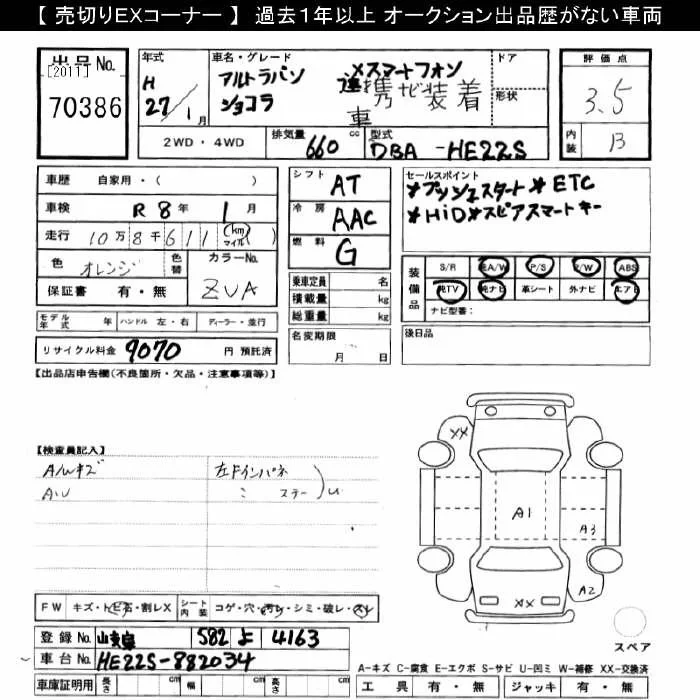 【 売切りEXコーナー 】 過去1年以上 オークション出品歴がない車両
出品No.
[2011]
70386
年式
H
27/1月
車名・グレード
アルトラパン
ショコラ
×スマートフォン
連携ナビ装着
車
ドア
形状
評価点
3.5
内装
B
2WD・4WD
排気量 660 cc
型式 DBA-HE22S
車歴 自家用・( )
車検 R 8年 1月
走行 10万8千611 (km マイル)( )
色 オレンジ
色替
カラーNo.
ZVA
保証書 有・無
モデル年式 年
ハンドル 左・右
ディーラー・並行
リサイクル料金 9070 円 預託済
シフト AT
冷房 AAC
燃料 G
乗車定員 名
積載量 kg
総重量 kg
名変期限
月 日
セールスポイント
*プッシュスタート *ETC
*HiD *スピアスマートキー
装備品
S/R EA/W P/S P/W ABS
純TV 純ナビ 革シート 外ナビ エアB
ナビ型番:
後日品
【出品店申告欄(不良箇所・欠品・注意事項等)】
【検査員記入】
A/Wキズ
AU
左Fインパネ
〃 ステー
U
XX
A1
A3
A2
XX
FW キズ・トビ石・割レX
シート内装 コゲ・穴・汚レ・シミ・破レ・スレ
登録No. 582 よ 4163
車台No. HE22S-882034
車庫証明用 長さ cm 幅 cm 高さ cm
スペア
A-キズ C-腐食 E-エクボ S-サビ U-凹ミ W-補修 XX-交換済
工具 有・無 ジャッキ 有・無